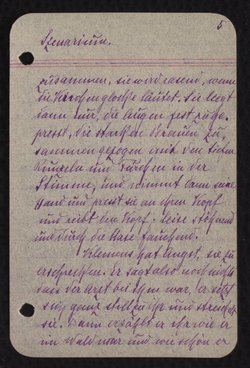 5
Szenarium.
zusammen, sie wird rasend, wenn
die Kirchenglocke läutet. Sie liegt
dann nur, die Augen fest zuge-
presst, die starken Brauen zu-
sammengezogen mit den tiefen
Runzeln und Furchen in der
Stirne, und nimmt dann eine
Hand und presst sie an ihren Kopf
und reibt den Kopf leise stöhnend
und durch die Nase fauchend.
Klemens hat Angst, sie zu
erschrecken. Er sagt also noch nichts
dass der Arzt bei ihm war, er setzt
sich ganz still zu ihr und streichelt
sie. Dann erzählt er ihr wie er
im Wald war und wie schön er